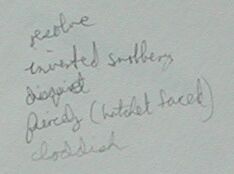 resolve
inverted snobbery
disquiet
fiercely (hatchet faced)
cloddish